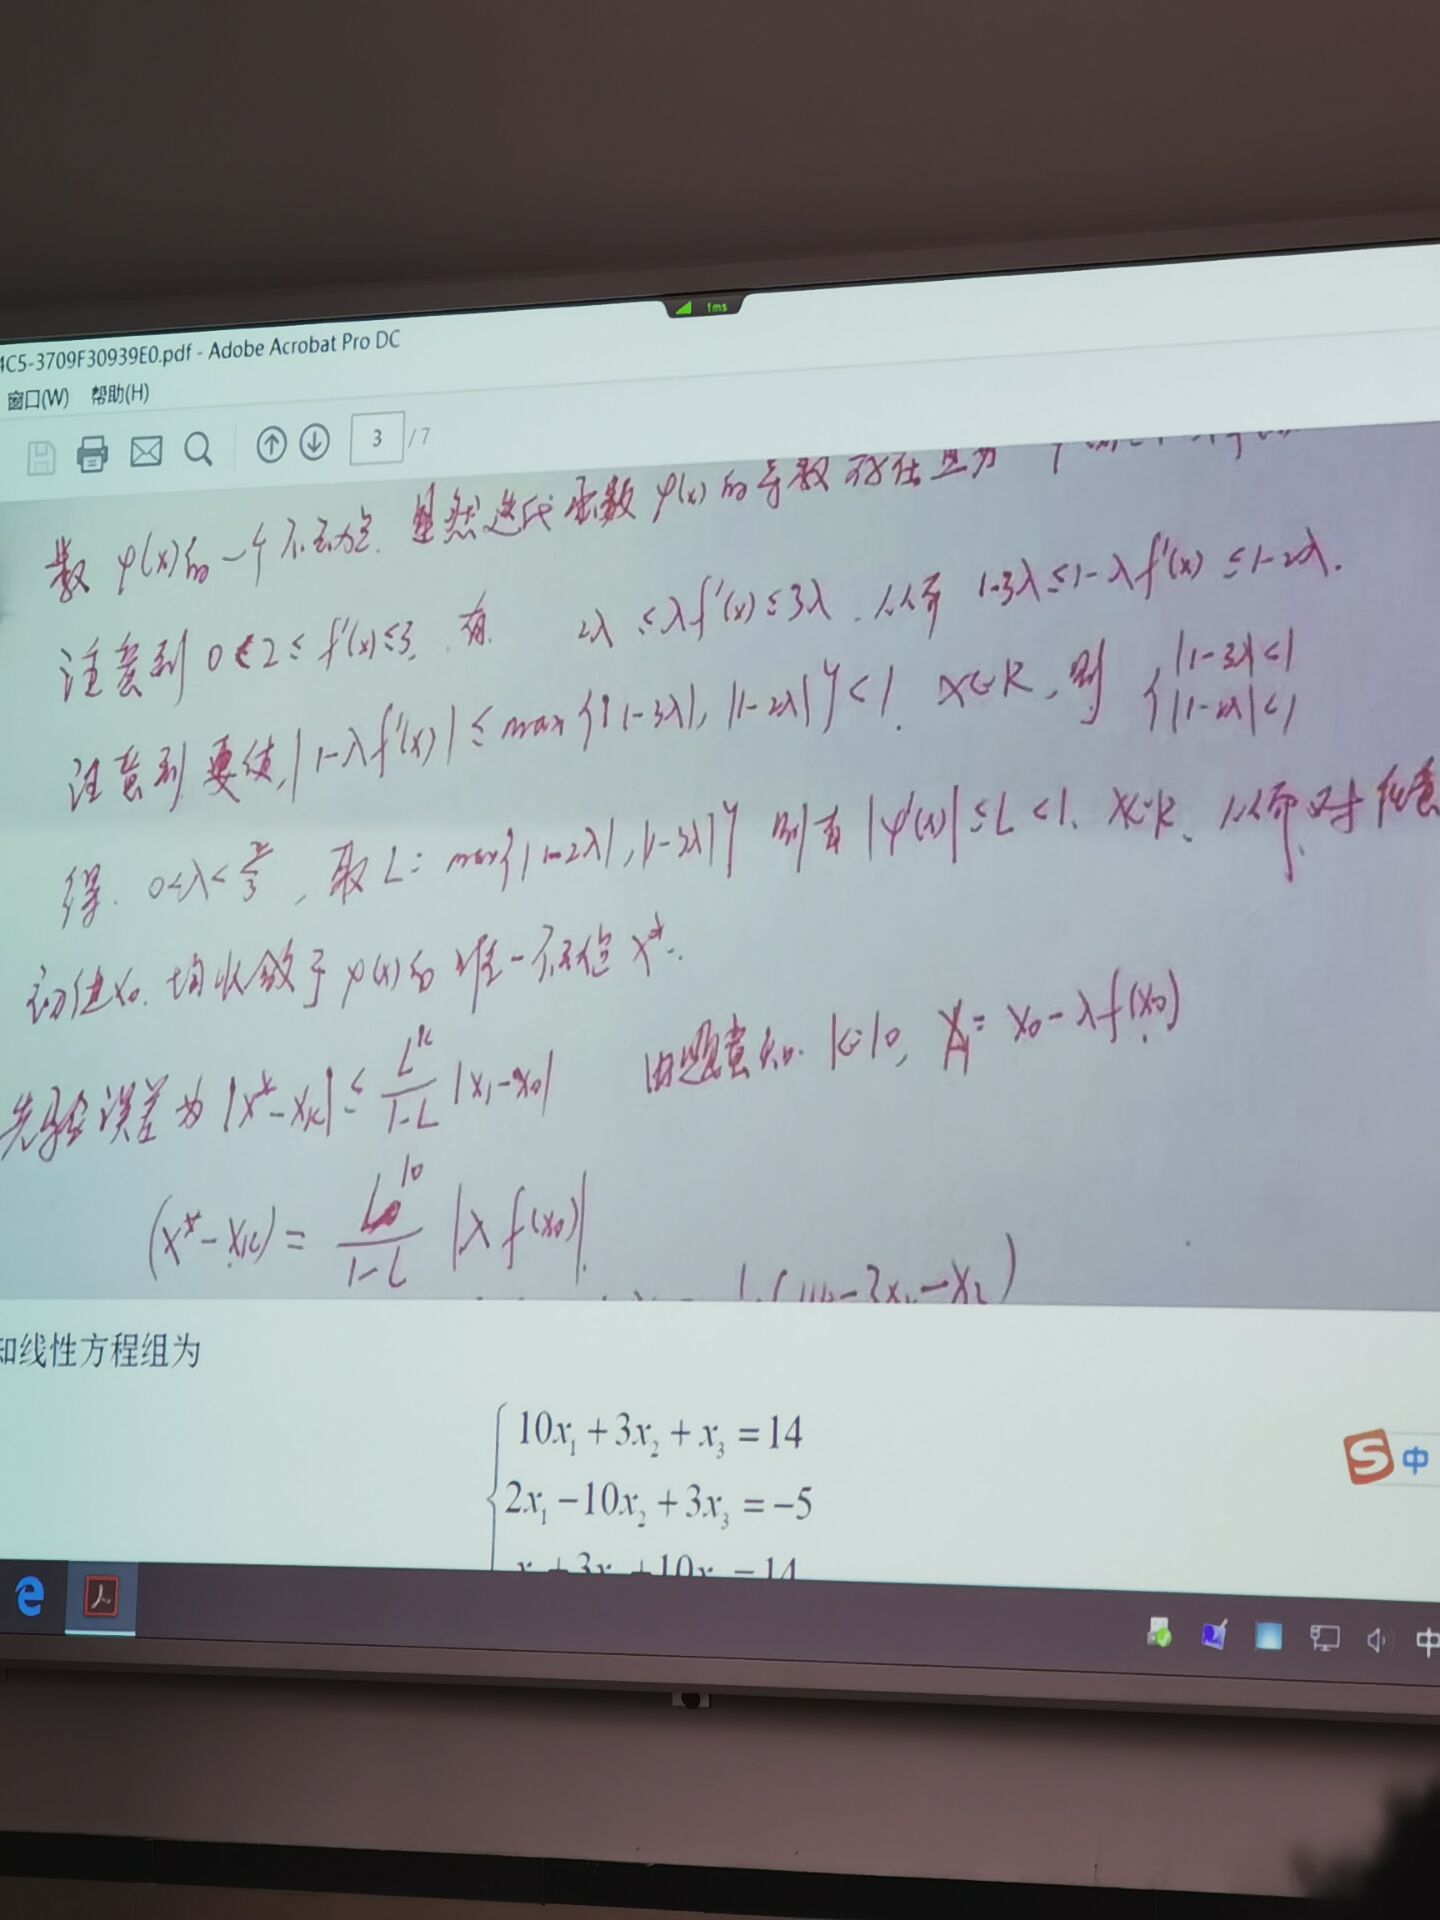 1ms
4C5-3709F30939E0.pdf - Adobe Acrobat Pro DC
窗口(W) 帮助(H)
3 / 7
数 φ(x)的一个不动点. 显然迭代函数 φ(x)的导数存在且为
注意到 0<2≤f'(x)≤3, 有 2λ≤λf'(x)≤3λ, 从而 1-3λ≤1-λf'(x)≤1-2λ.
注意到要使 |1-λf'(x)|≤max{|1-3λ|, |1-2λ|}<1, x∈R, 则 { |1-3λ|<1
|1-2λ|<1
得. 0<λ<2/3, 取 L= max{|1-2λ|, |1-3λ|} 则有 |φ'(x)|≤L<1. x∈R, 从而对任意
初值x₀. 均收敛于 φ(x)的唯一不动点 x*.
先验误差为 |x*-xₖ|≤ Lᵏ/(1-L) |x₁-x₀| 由题意知. k=10, x₁= x₀-λf(x₀)
(x*-xₖ) = L¹⁰/(1-L) |λf(x₀)|
知线性方程组为
10x₁+3x₂+x₃=14
2x₁-10x₂+3x₃=-5
x +3x +10x =14
S 中
e
中